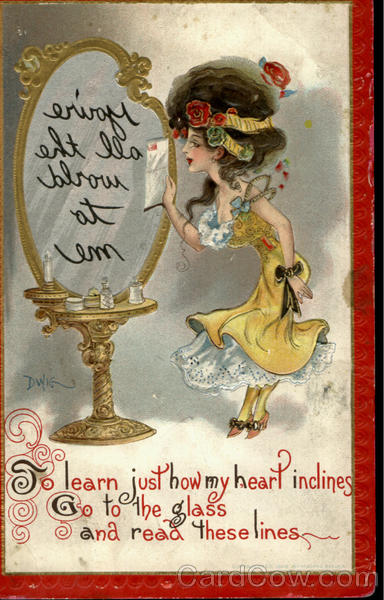 you're
all the
world
to
me
DWIG
To learn just how my heart inclines
Go to the glass
and read these lines
CardCow.com